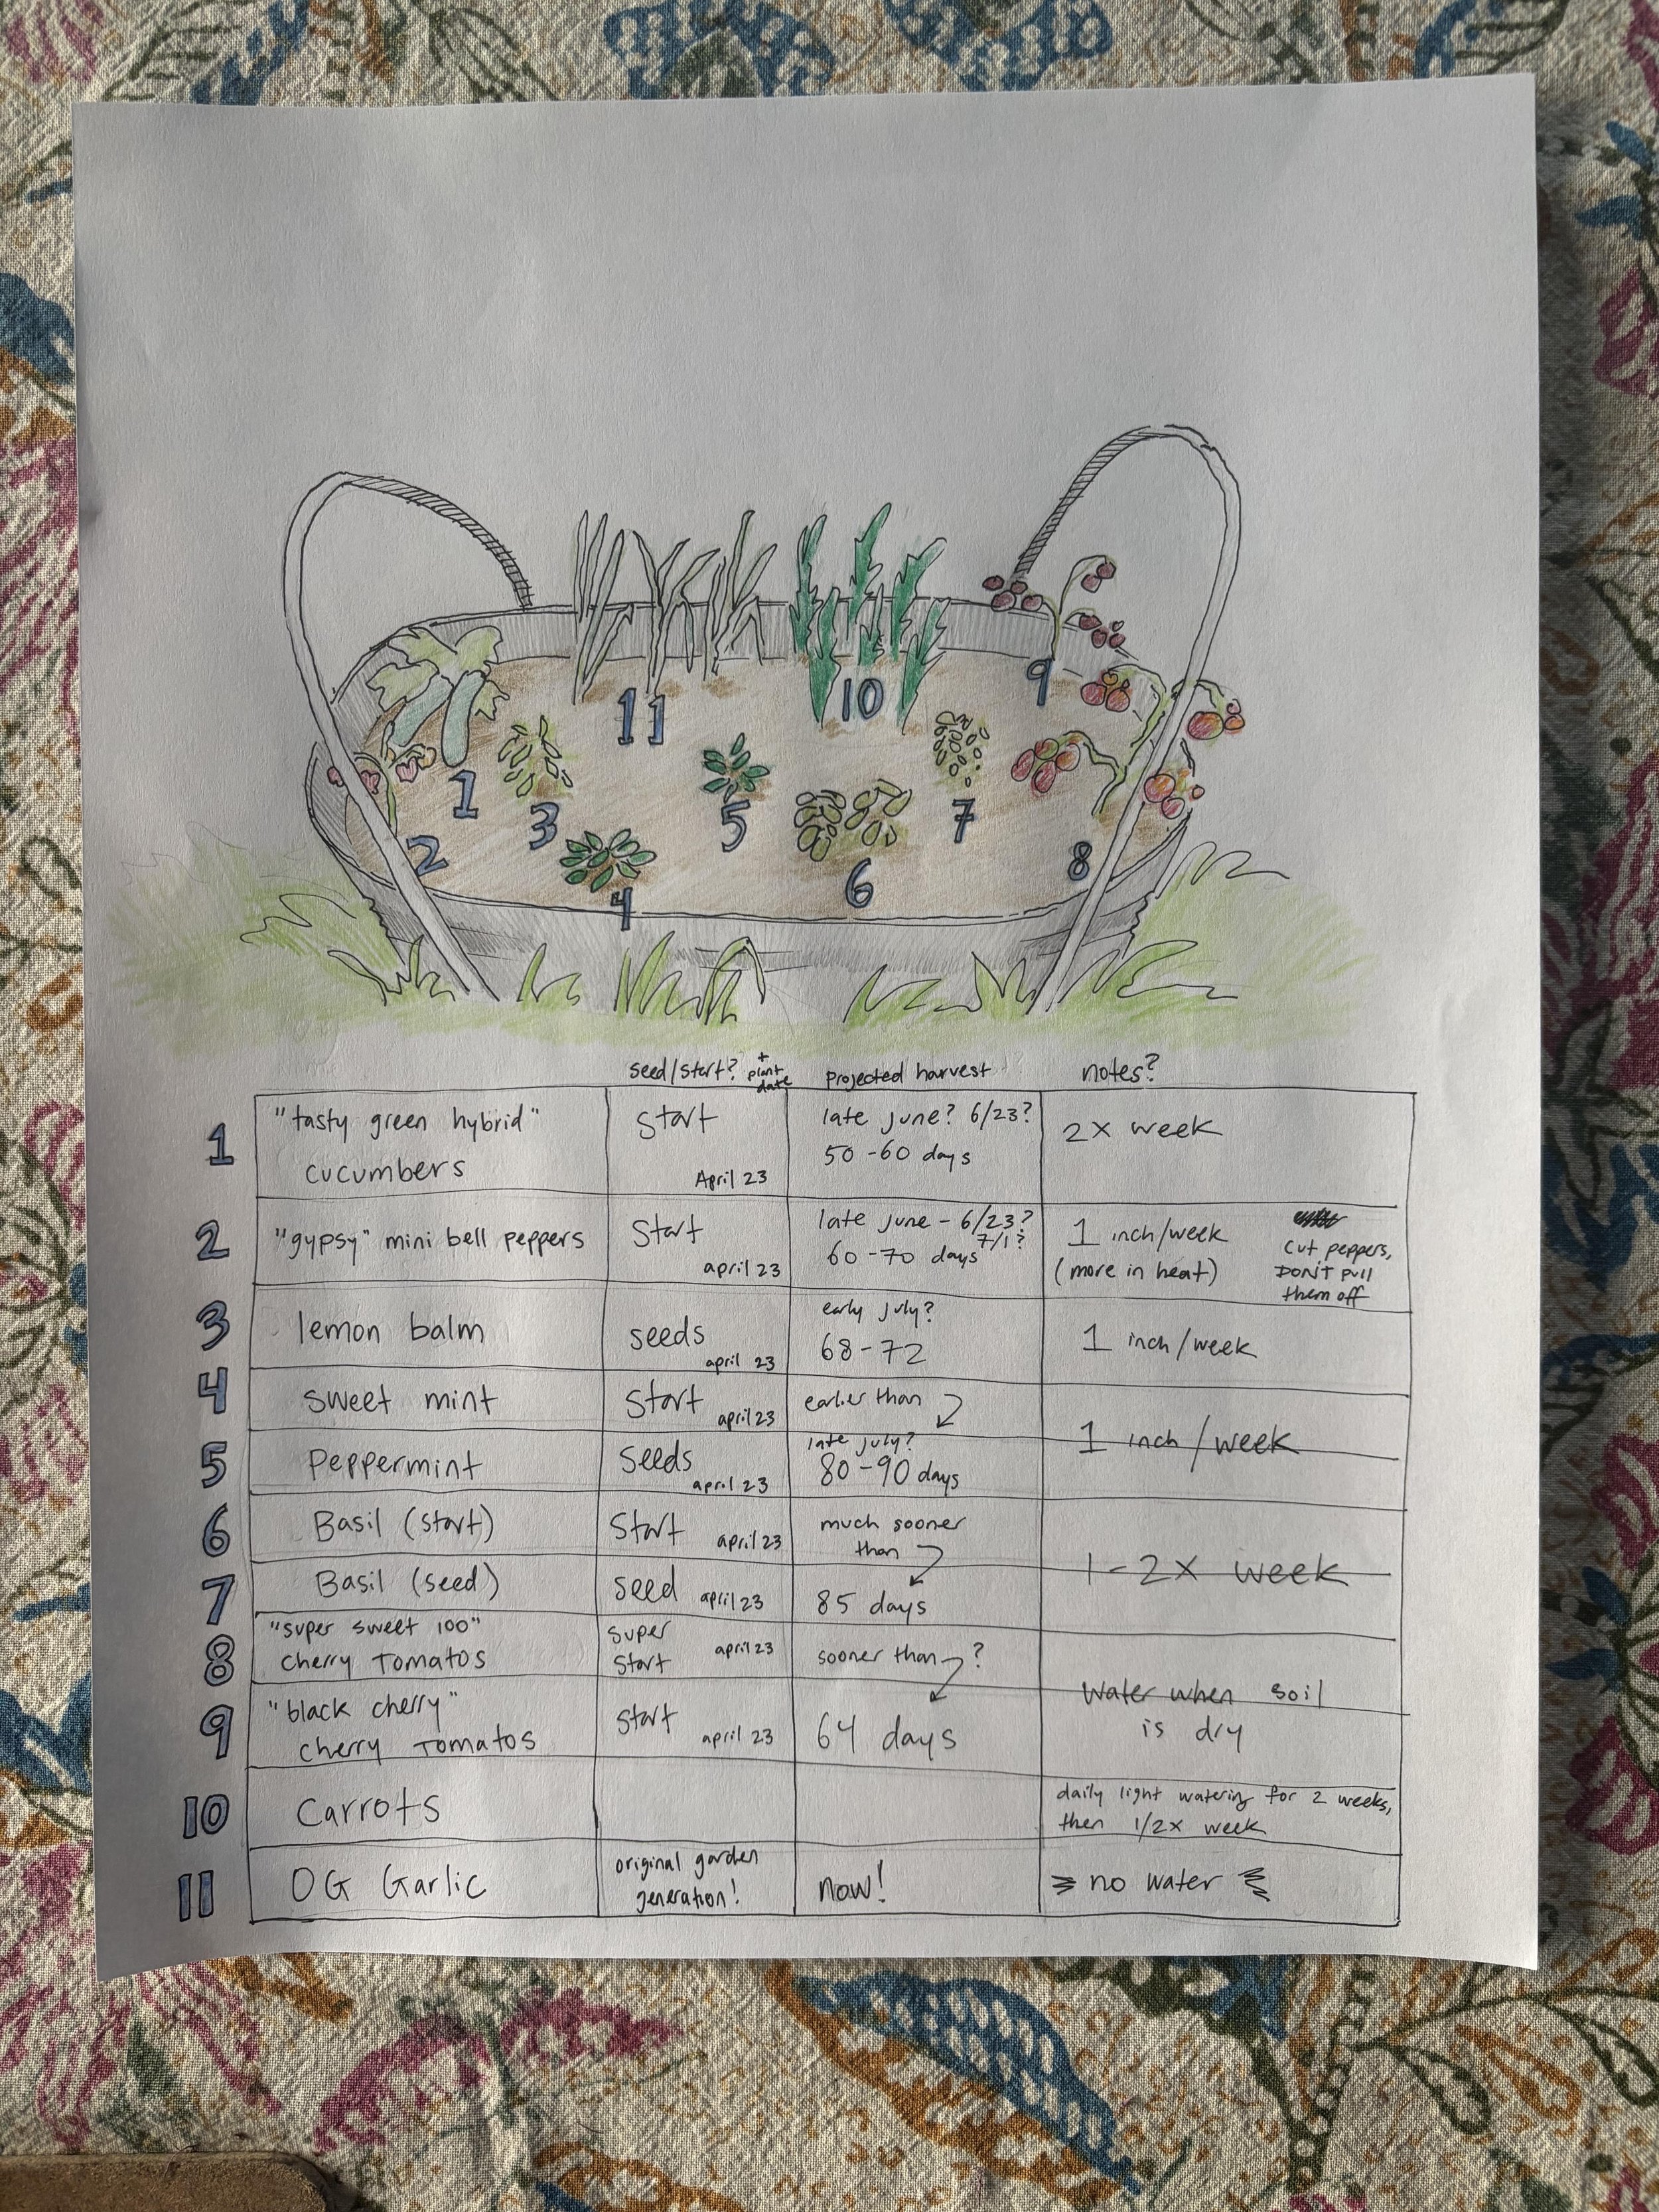 11
10
9
1
3
5
7
2
6
8
4
seed/start? + plant date
projected harvest
notes?
1
"tasty green hybrid"
cucumbers
Start
April 23
late june? 6/23?
50-60 days
2x week
2
"gypsy" mini bell peppers
Start
april 23
late june - 6/23?
7/1?
60-70 days
1 inch/week
(more in heat)
cut peppers,
DON'T pull
them off
3
lemon balm
seeds
april 23
early july?
68-72
1 inch/week
4
sweet mint
Start
april 23
earlier than
5
Peppermint
Seeds
april 23
late july?
80-90 days
1 inch/week
6
Basil (start)
Start
april 23
much sooner
than
7
Basil (seed)
seed
april 23
85 days
1-2x week
8
"super sweet 100"
cherry Tomatos
super
start
april 23
sooner than ?
9
"black cherry"
cherry Tomatos
start
april 23
64 days
water when soil
is dry
10
Carrots
daily light watering for 2 weeks,
then 1/2x week
11
OG Garlic
original garden
generation!
now!
no water